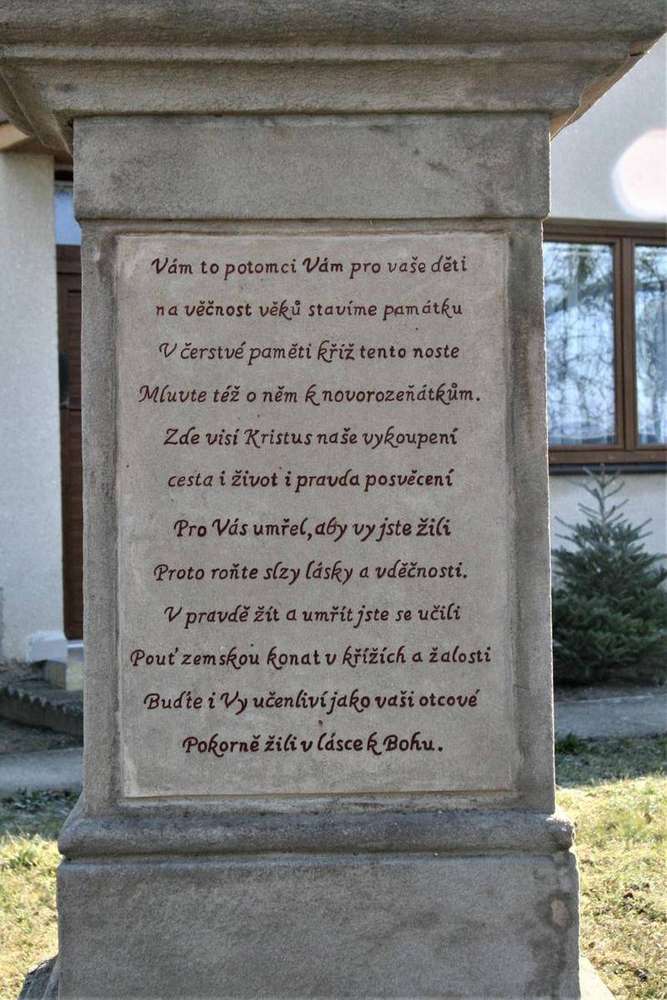 Vám to potomci Vám pro vaše děti
na věčnost věků stavíme památku
V čerstvé paměti kříž tento noste
Mluvte též o něm k novorozeňátkům.
Zde visí Kristus naše vykoupení
cesta i život i pravda posvěcení
Pro Vás umřel, aby vy jste žili
Proto roňte slzy lásky a vděčnosti.
V pravdě žít a umřít jste se učili
Pouť zemskou konat v křížích a žalosti
Buďte i Vy učenliví jako vaši otcové
Pokorně žili v lásce k Bohu.